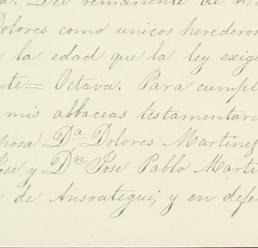 a. Del remanente de m
Dolores como unicos herederos
la edad que la ley exig
nte = Octava. Para cumpl
mis albaceas testamentari
posa) Dª Dolores Martinez
Jose y Dⁿ Jose Pablo Marti
de Ansoategui; y en defe